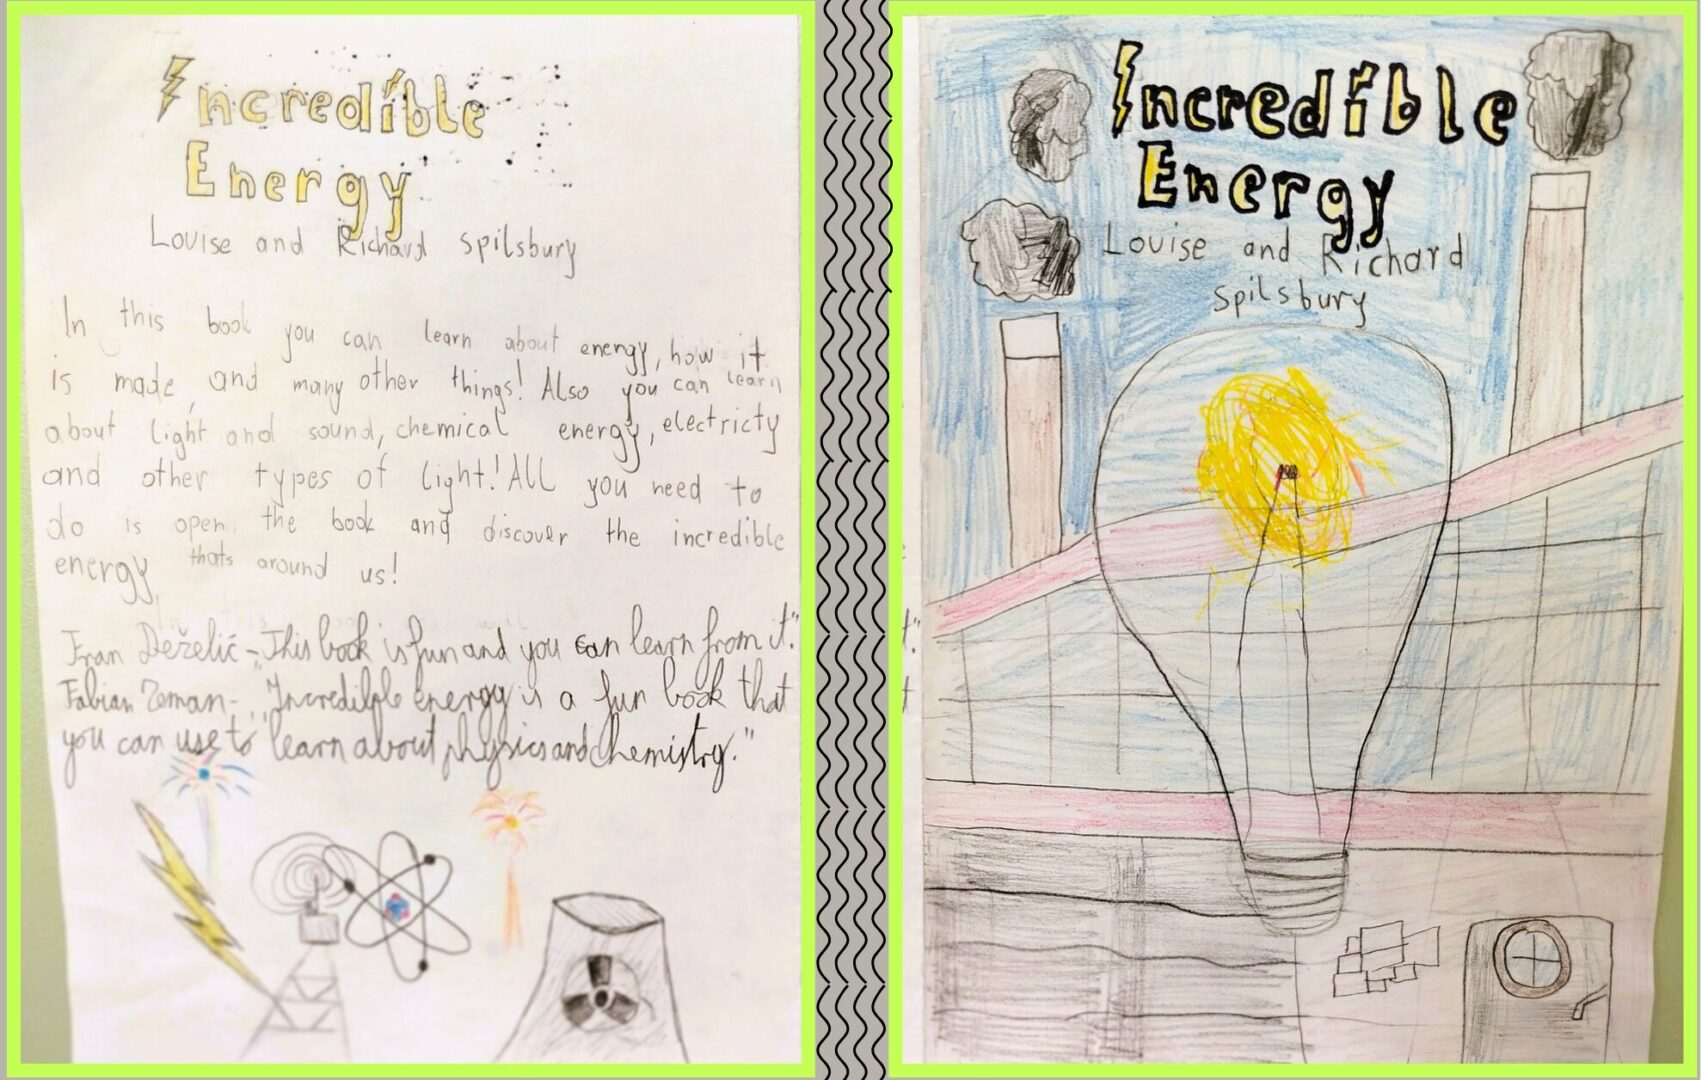 Incredible
Energy
Louise and Richard Spilsbury
In this book you can learn about energy, how it
is made, and many other things! Also you can learn
about light and sound, chemical energy, electricty
and other types of light! All you need to
do is open the book and discover the incredible
energy thats around us!
Fran Deželić - „This book is fun and you can learn from it."
Fabian Zeman - „Incredible energy is a fun book that
you can use to learn about physics and chemistry."
Incredible
Energy
Louise and Richard
Spilsbury